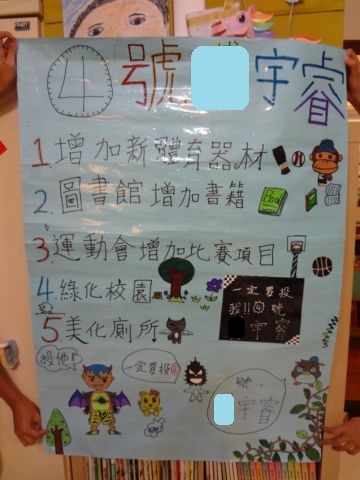 ④號 宇睿
1.增加新體育器材
2.圖書館增加書籍
Book
3.運動會增加比賽項目
4.綠化校園
一定要投
我!!④號
宇睿
5.美化廁所
投他!!
一定要投④
號,
宇睿